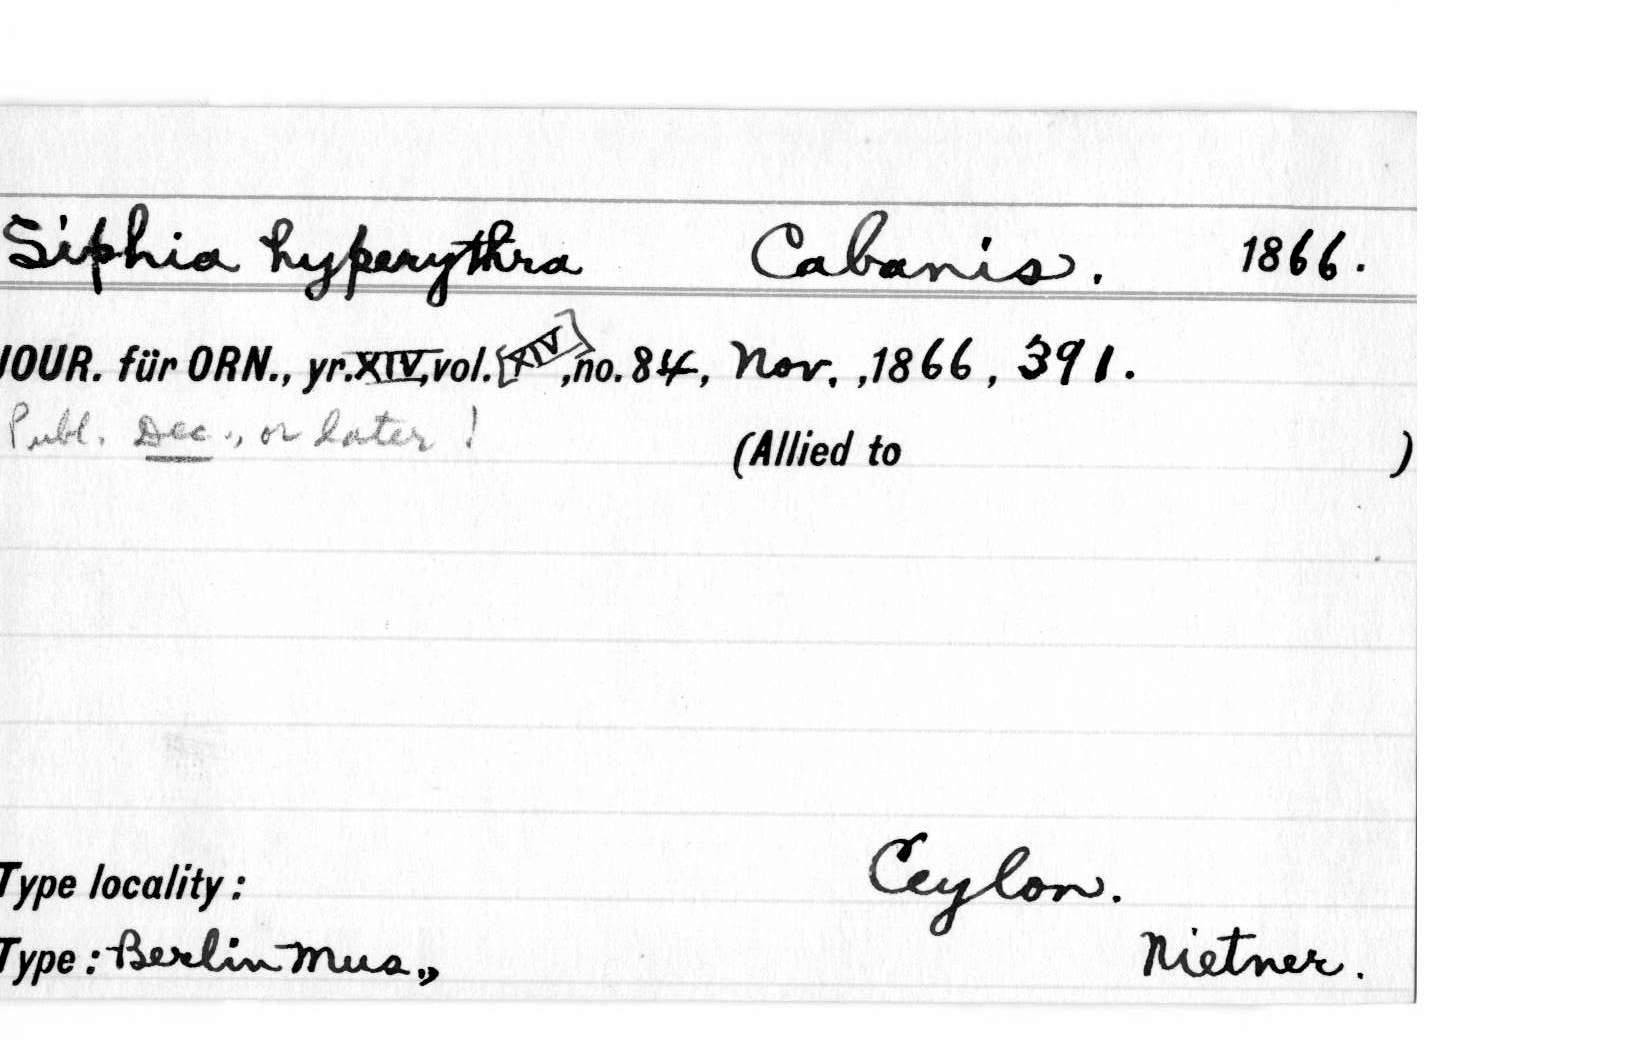 Siphia hyperythra Cabanis. 1866.
JOUR. für ORN., yr. XIV, vol. [XIV], no. 84, Nov., 1866, 391.
Publ. Dec., or later!
(Allied to )
Type locality: Ceylon.
Type: Berlin Mus., Nietner.